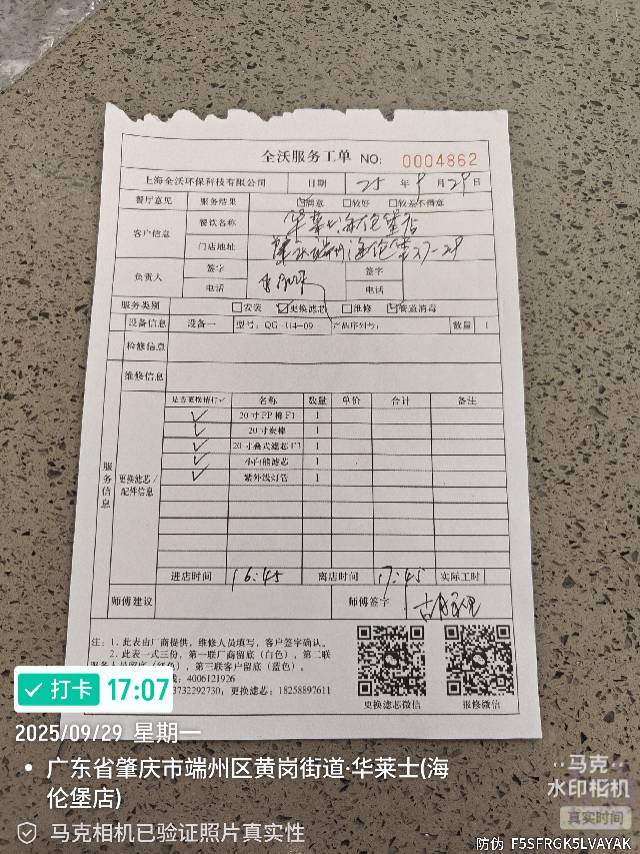 全沃服务工单 NO: 0004862
上海全沃环保科技有限公司 日期 25 年 9 月 29 日
餐厅意见 服务结果 满意 较好 较差不得意
客户信息 餐饮名称 华莱士海伦堡店
门店地址 肇庆端州海伦堡27-29
负责人 签字 签字
电话 电话
服务类别 安装 更换滤芯 维修 管道消毒
设备信息 设备一 型号: QG-114-09 产品序列号: 数量 1
检修信息
维修信息
服务信息
更换滤芯/配件信息
是否更换请打✓ 名称 数量 单价 合计 备注
✓ 20寸PP棉F1 1
✓ 20寸炭棒 1
✓ 20寸叠式滤芯 1
✓ 小白熊滤芯 1
✓ 紫外线灯管 1
进店时间 16:45 离店时间 17:45 实际工时
师傅建议 师傅签字
注: 1. 此表由厂商提供, 维修人员填写, 客户签字确认。
2. 此表一式三份, 第一联厂商留底(白色), 第二联
服务人员留底(红色), 第三联客户留底(蓝色)。
4006121926
3732292730, 更换滤芯: 18258897611
更换滤芯微信 报修微信
打卡 17:07
2025/09/29 星期一
广东省肇庆市端州区黄岗街道·华莱士(海
伦堡店)
马克相机已验证照片真实性
马克
水印相机
真实时间
防伪 F5SFRGK5LVAYAK